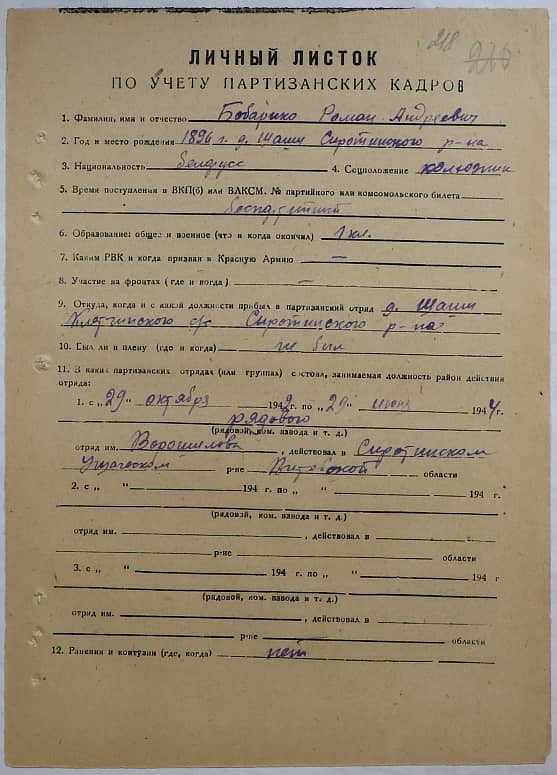 218
210
ЛИЧНЫЙ ЛИСТОК
ПО УЧЕТУ ПАРТИЗАНСКИХ КАДРОВ
1. Фамилия, имя и отчество Бобарико Роман Андреевич
2. Год и место рождения 1896 г. д. Шаши Сиротинского р-на
3. Национальность белорусс 4. Соцположение колхозник
5. Время поступления в ВКП(б) или ВЛКСМ. № партийного или комсомольского билета
беспартийный
6. Образование: общее и военное (что и когда окончил) 1 кл.
7. Каким РВК и когда призван в Красную Армию —
8. Участие на фронтах (где и когда) —
9. Откуда, когда и с какой должности прибыл в партизанский отряд д. Шаши
с/с Сиротинского р-на
10. Был ли в плену (где и когда) не был
11. В каких партизанских отрядах (или группах) состоял, занимаемая должность район действия
отряда:
1. с „29" октября 1942 г. по „29" июня 1944 г.
рядового
(рядовой, ком. взвода и т. д.)
отряд им. Ворошилова, действовал в Сиротинском
р-не Витебской области
2. с „ " 194 г. по „ " 194 г.
(рядовой, ком. взвода и т. д.)
отряд им. , действовал в
р-не области
3. с „ " 194 г. по „ " 194 г
(рядовой, ком. взвода и т. д.)
отряд им. , действовал в
р-не области
12. Ранения и контузии (где, когда) нет